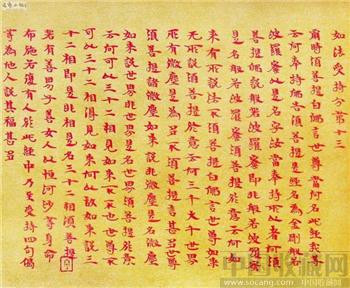 如法受持分第十三
爾時須菩提白佛言世尊當何名此經我等
云何奉持佛告須菩提是經名為金剛般若
波羅蜜以是名字汝當奉持所以者何須
菩提佛說般若波羅蜜即非般若波羅蜜
是名般若波羅蜜須菩提於意云何如
來有所說法不須菩提白佛言世尊如來
无所說須菩提於意云何三千大千世界
所有微塵是為多不須菩提言甚多世尊
須菩提諸微塵如來說非微塵是名微塵
如來說世界非世界是名世界須菩提於意
云何可以三十二相見如來不不也世尊不
可以三十二相得見如來何以故如來說三
十二相即是非相是名三十二相須菩提
若有善男子善女人以恒河沙等身命
布施若復有人於此經中乃至受持四句偈
等為他人說其福甚多
中国收藏网
www.socang.com